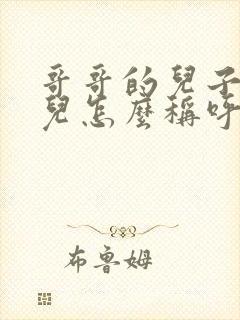 哥哥的兒子
兒怎麼稱呼
布魯姆